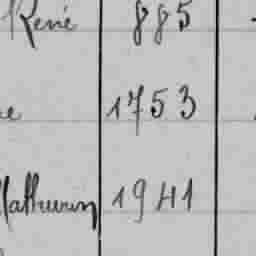 René 885
1753
Mathurin 1941